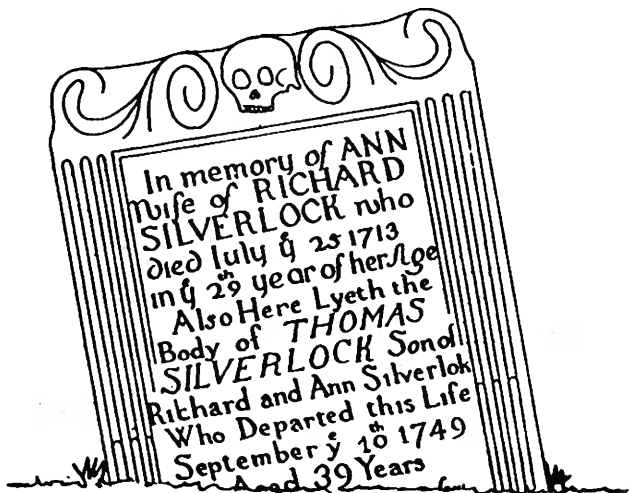 In memory of ANN
Wife of RICHARD
SILVERLOCK who
died Iuly ẏ 25 1713
in ẏ 29th year of her Age
Also Here Lyeth the
Body of THOMAS
SILVERLOCK Son of
Richard and Ann Silverlok
Who Departed this Life
September yͤ 10th 1749
Aged 39 Years